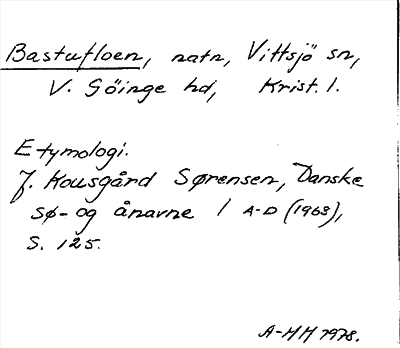 Bastufloen, natn, Vittsjö sn,
V. Göinge hd, Krist. l.
Etymologi.
J. Kousgård Sørensen, Danske
sø- og ånavne 1 A-D (1968),
S. 125.
A-HH 1978.